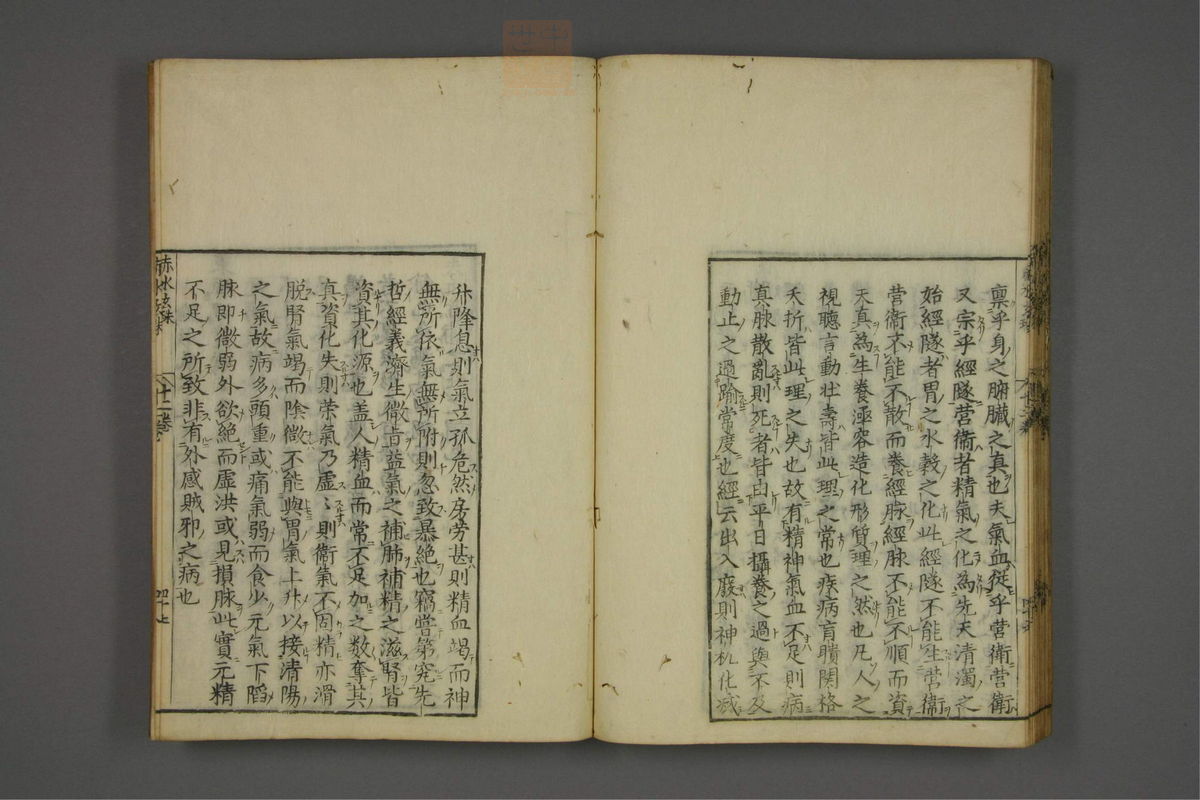 禀乎身之腑臓之真也夫氣血從乎營衛營衛
又宗乎經隧營衛者精氣之化為先天清濁之
始經隧者胃之水穀之化此經隧不能生營衛
營衛不能不散而養經脉經脉不能不順而資
天真為生養逕容造化形質理之然也凡人之
視聽言動壮壽皆此理之常也疾病盲聵関格
夭折皆此理之失也故有精神氣血不足則病
真脉散亂則死者皆由平日攝養之過與不及
動止之過踰常度也經云出入廢則神机化滅
升降息則氣立孤危然房劳甚則精血竭而神
無所依氣無所附則忽致暴絶也竊嘗第究先
哲經義濟生微㫖益氣之補肺補精之滋腎皆
資其化源也盖人精血而常不足加之数奪其
真資化失則荣氣乃虚〻則衛氣不固精亦滑
脱腎氣竭而陰微不能與胃氣上升以接清陽
之氣故病多頭重或痛氣弱而食少元氣下䧟
脉即微弱外欲絶而虚洪或見損脉此實元精
不足之所致非有外感賊邪之病也
赤水玄珠
十一卷
四十七